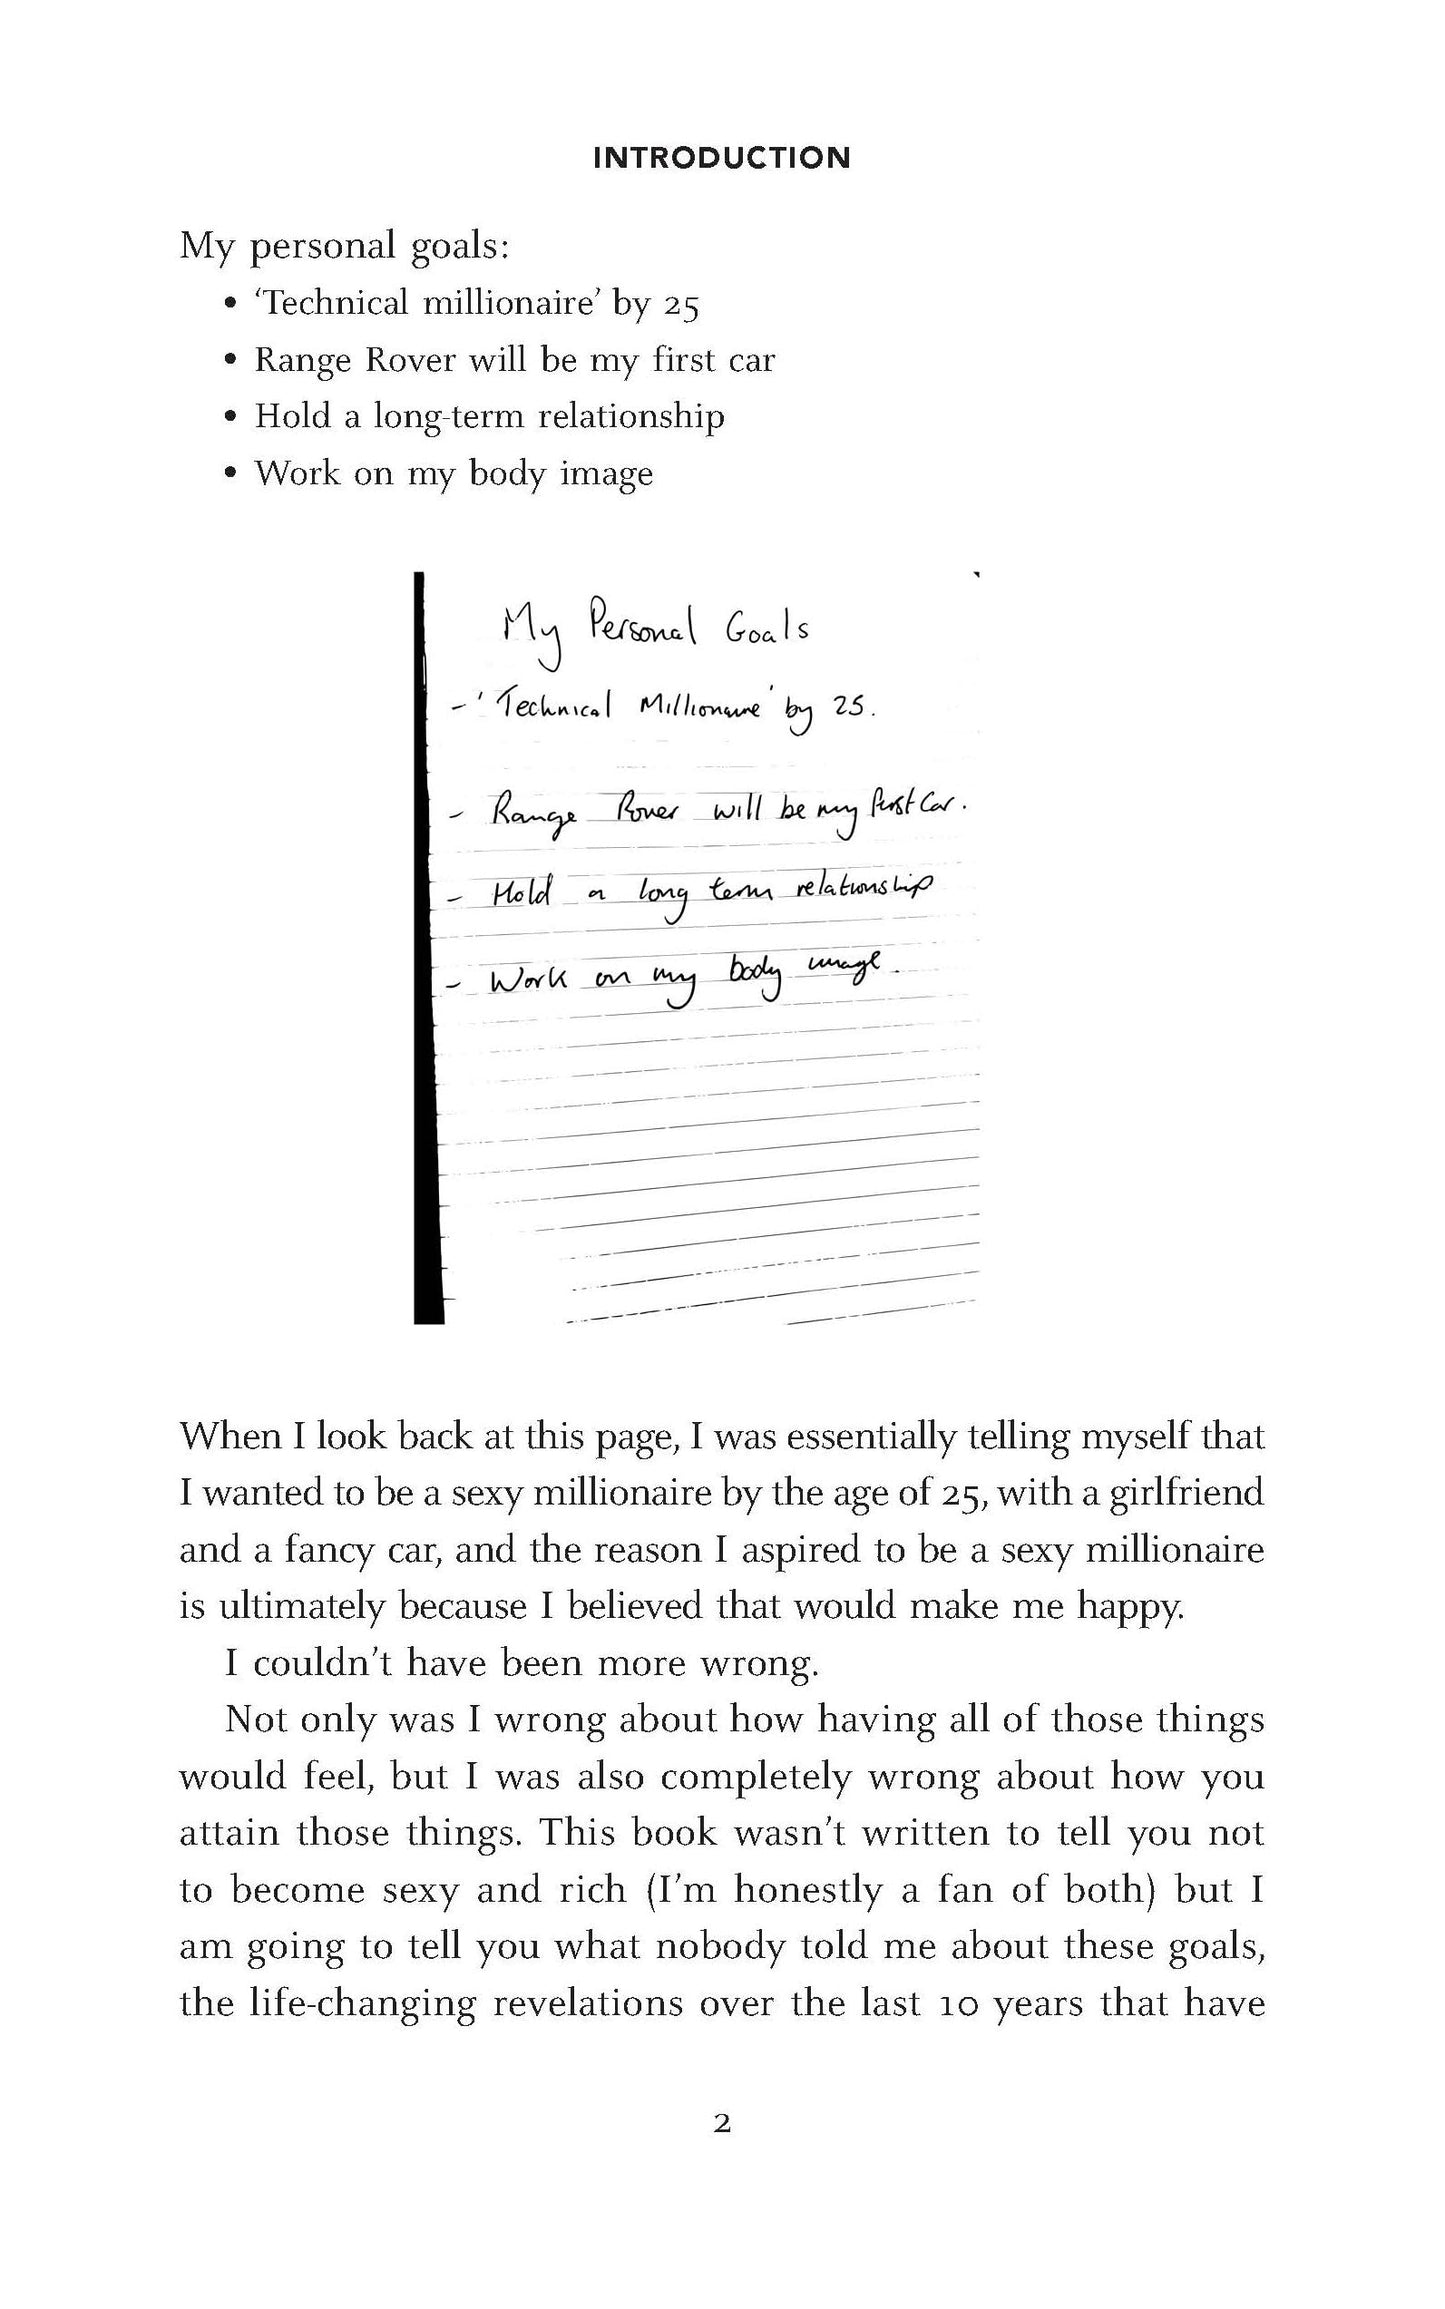 INTRODUCTION
My personal goals:
• ‘Technical millionaire’ by 25
• Range Rover will be my first car
• Hold a long-term relationship
• Work on my body image
My Personal Goals
- 'Technical Millionaire' by 25.
- Range Rover will be my first Car.
- Hold a long term relationship
- Work on my body image.
When I look back at this page, I was essentially telling myself that
I wanted to be a sexy millionaire by the age of 25, with a girlfriend
and a fancy car, and the reason I aspired to be a sexy millionaire
is ultimately because I believed that would make me happy.
I couldn’t have been more wrong.
Not only was I wrong about how having all of those things
would feel, but I was also completely wrong about how you
attain those things. This book wasn’t written to tell you not
to become sexy and rich (I’m honestly a fan of both) but I
am going to tell you what nobody told me about these goals,
the life-changing revelations over the last 10 years that have
2